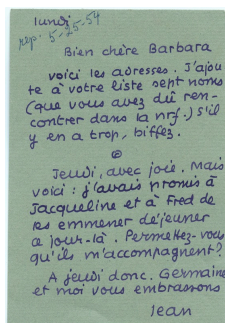 lundi
rép. 5-25-54
Bien chère Barbara
voici les adresses. J'ajou
te à votre liste sept noms
(que vous avez dû ren-
contrer dans la nrf.) S'il
y en a trop, biffez.
Jeudi, avec joie. Mais
voici : j'avais promis à
Jacqueline et à Fred de
les emmener déjeuner
ce jour-là. Permettez-vous
qu'ils m'accompagnent?
A jeudi donc. Germaine
et moi vous embrassons
Jean